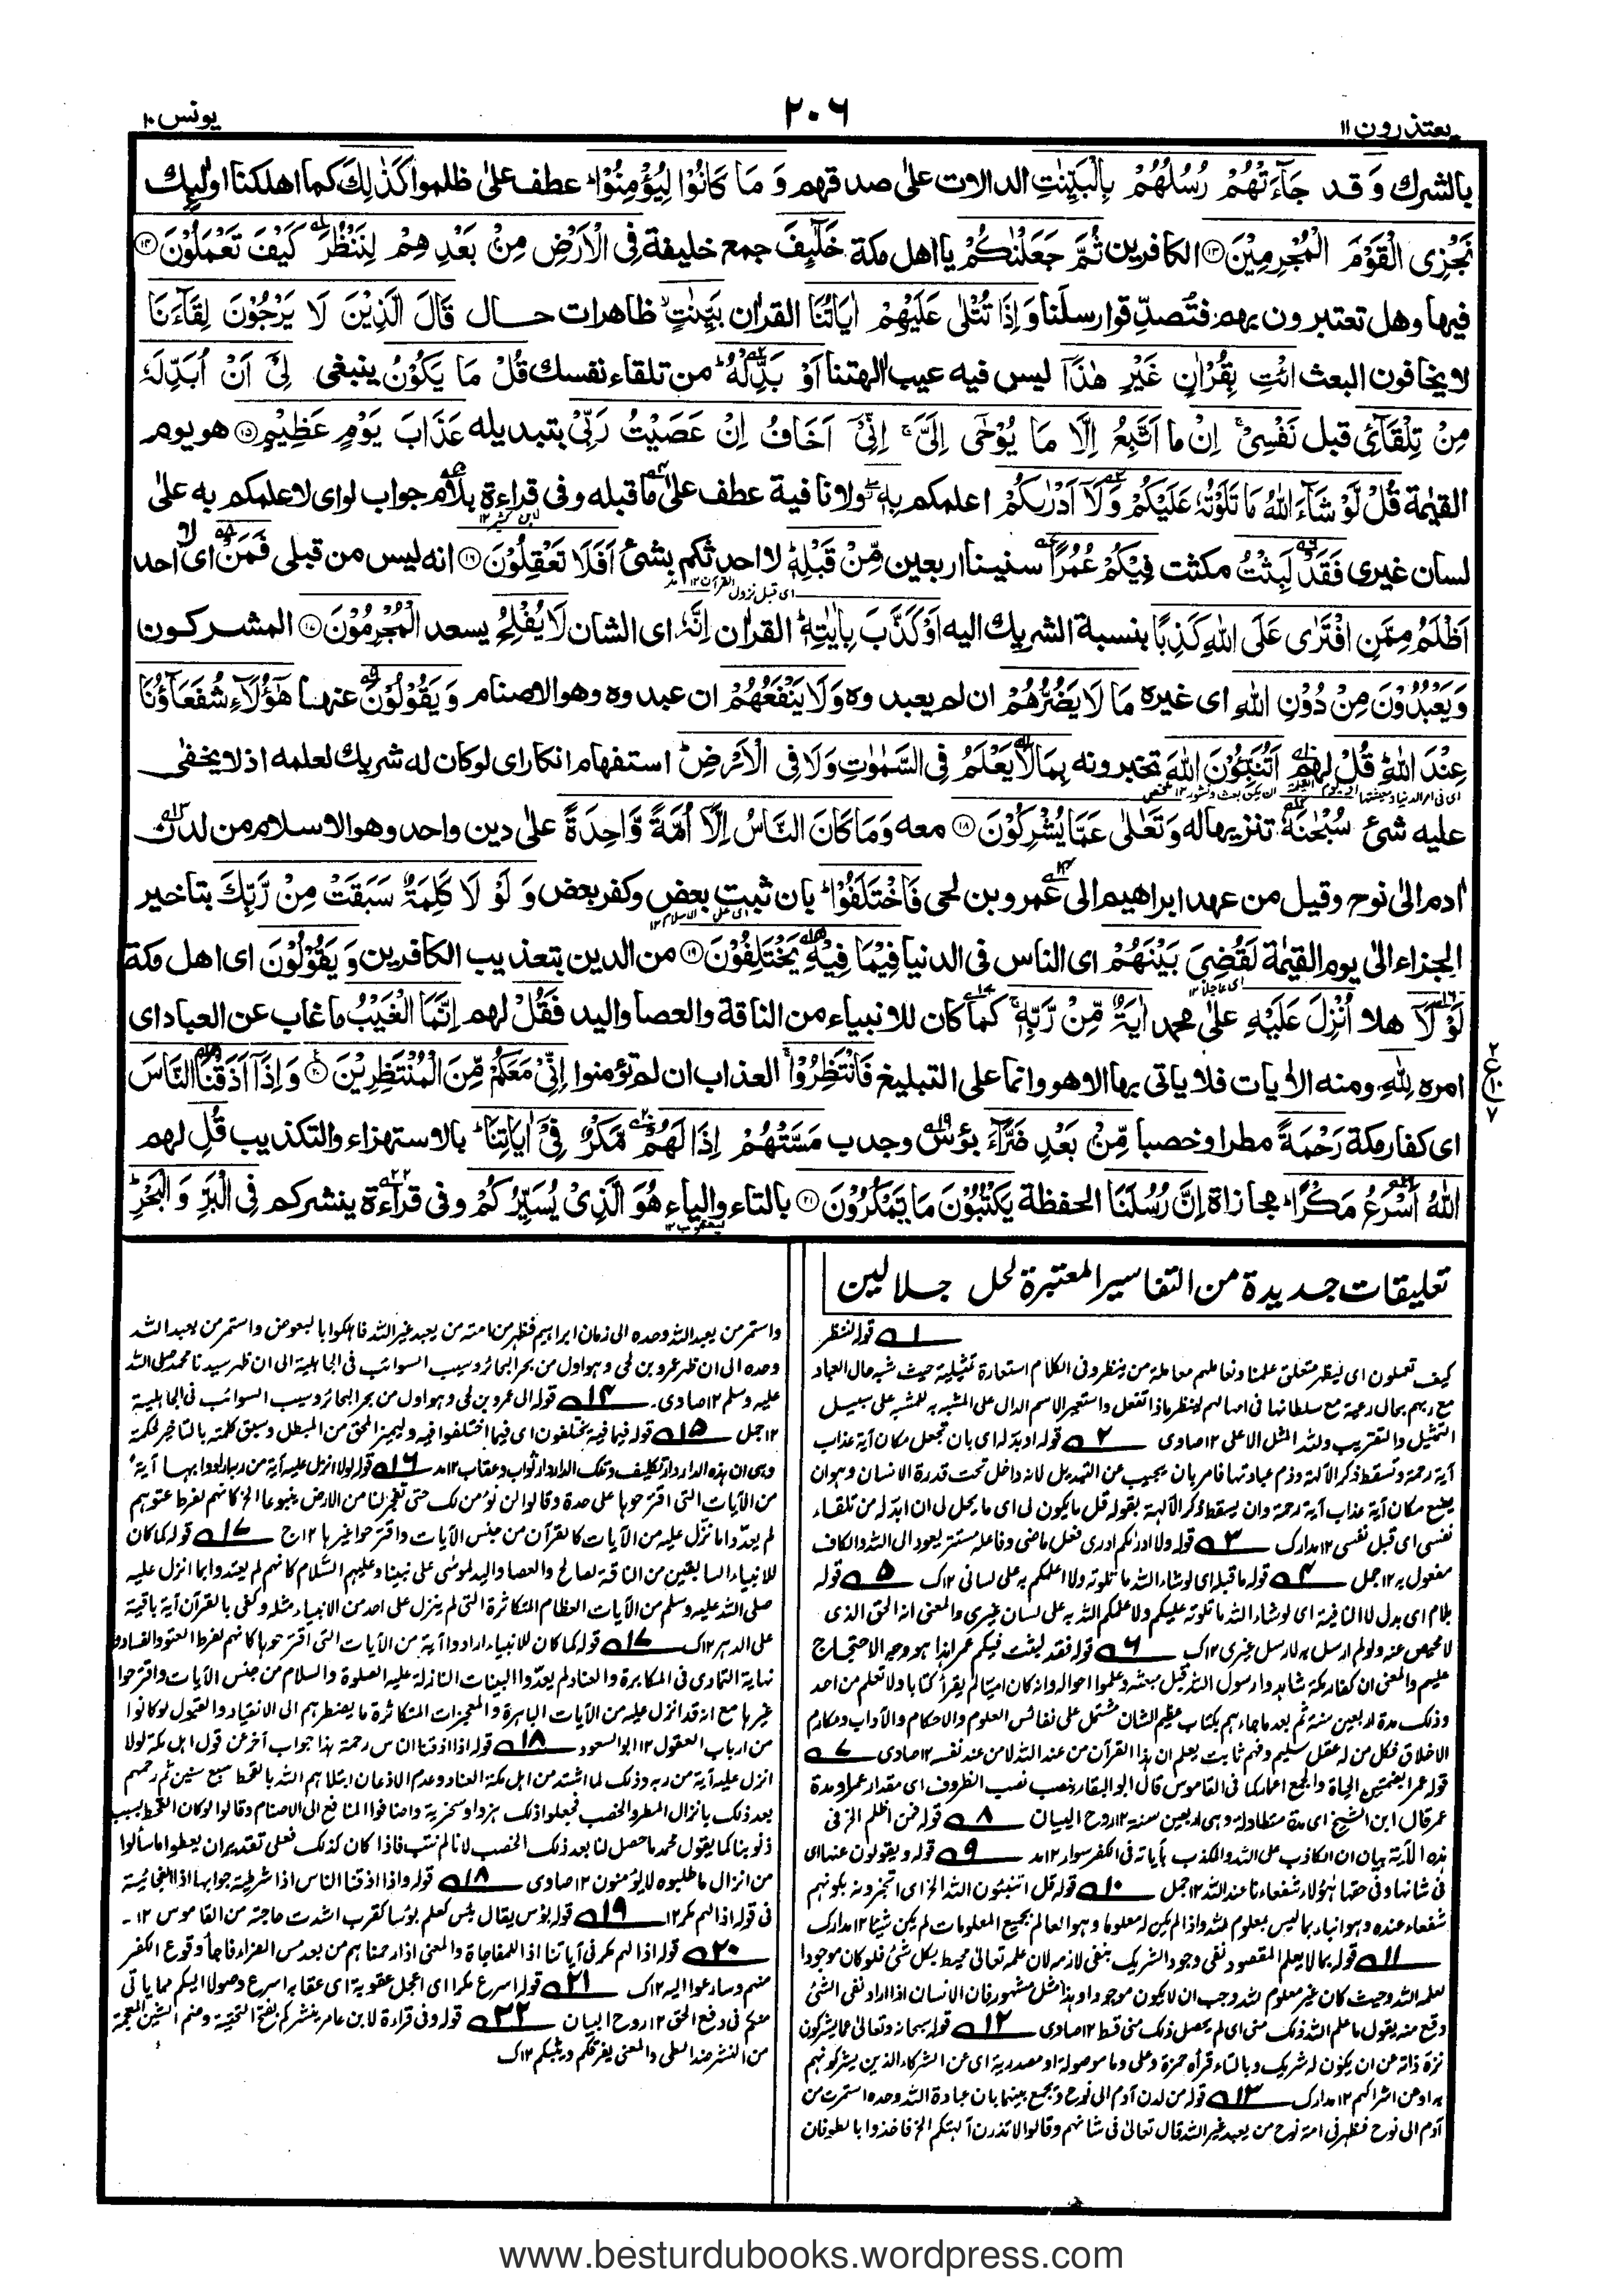 يعتذرون ١١
٢٠٦
يونس ١٠
بالشرك وَقد جَآءَتْهُمْ رُسُلُهُمْ بِالْبَيِّنٰتِ الدالات على صدقهم وَمَا كَانُوْا لِيُؤْمِنُوْا ؕ عطف على ظلموا كَذٰلِكَ كما اهلكنا اولٰئك
نَجْزِى الْقَوْمَ الْمُجْرِمِيْنَ ⑬ الكافرين ثُمَّ جَعَلْنٰكُمْ يا اهل مكة خَلٰٓئِفَ جمع خليفة فِى الْاَرْضِ مِنْۢ بَعْدِهِمْ لِنَنْظُرَ كَيْفَ تَعْمَلُوْنَ ⑭
فيها وهل تعتبرون بهم فتصدّقوا رسلنا وَاِذَا تُتْلٰى عَلَيْهِمْ اٰيَاتُنَا القراٰن بَيِّنٰتٍ ۙ ظاهرات حال قَالَ الَّذِيْنَ لَا يَرْجُوْنَ لِقَآءَنَا
لا يخافون البعث ائْتِ بِقُرْاٰنٍ غَيْرِ هٰذَآ ليس فيه عيب اٰلهتنا اَوْ بَدِّلْهُ ؕ من تلقاء نفسك قُلْ مَا يَكُوْنُ ينبغى لِىْٓ اَنْ اُبَدِّلَهٗ
مِنْ تِلْقَآئِ قبل نَفْسِىْ ۚ اِنْ ما اَتَّبِعُ اِلَّا مَا يُوْحٰى اِلَىَّ ۚ اِنِّىْٓ اَخَافُ اِنْ عَصَيْتُ رَبِّىْ بتبديله عَذَابَ يَوْمٍ عَظِيْمٍ ⑮ هو يوم
القيٰمة قُلْ لَّوْ شَآءَ اللّٰهُ مَا تَلَوْتُهٗ عَلَيْكُمْ وَلَآ اَدْرٰىكُمْ اعلمكم بِهٖ ۖ ولا نافية عطف على ما قبله وفى قراءة بلام جواب لو اى لاعلمكم به على
لابن كثير ١٢
لسان غيرى فَقَدْ لَبِثْتُ مكثت فِيْكُمْ عُمُرًا سنينا اربعين مِّنْ قَبْلِهٖ ؕ لا احدثكم بشئ اَفَلَا تَعْقِلُوْنَ ⑯ انه ليس من قبلى فَمَنْ اى لا احد
اى قبل نزول القرآن ١٢
اَظْلَمُ مِمَّنِ افْتَرٰى عَلَى اللّٰهِ كَذِبًا بنسبة الشريك اليه اَوْ كَذَّبَ بِاٰيٰتِهٖ ؕ القراٰن اِنَّهٗ اى الشان لَا يُفْلِحُ يسعد الْمُجْرِمُوْنَ ⑰ المشركون
وَيَعْبُدُوْنَ مِنْ دُوْنِ اللّٰهِ اى غيره مَا لَا يَضُرُّهُمْ ان لم يعبدوه وَلَا يَنْفَعُهُمْ ان عبدوه وهو الاصنام وَيَقُوْلُوْنَ عنها هٰٓؤُلَآءِ شُفَعَآؤُنَا
عِنْدَ اللّٰهِ ؕ قُلْ لهم اَتُنَبِّئُوْنَ اللّٰهَ تخبرونه بِمَا لَا يَعْلَمُ فِى السَّمٰوٰتِ وَلَا فِى الْاَرْضِ ؕ استفهام انكار اى لو كان له شريك لعلمه اذ لا يخفى
عليه شئ سُبْحٰنَهٗ تنزيها له وَتَعٰلٰى عَمَّا يُشْرِكُوْنَ ⑱ معه وَمَا كَانَ النَّاسُ اِلَّآ اُمَّةً وَّاحِدَةً على دين واحد وهو الاسلام من لدن
اٰدم الى نوح وقيل من عهد ابراهيم الى عمرو بن لحى فَاخْتَلَفُوْا ؕ بان ثبت بعض وكفر بعض وَلَوْ لَا كَلِمَةٌ سَبَقَتْ مِنْ رَّبِّكَ بتاخير
اى على الاسلام ١٢
الجزاء الى يوم القيٰمة لَقُضِىَ بَيْنَهُمْ اى الناس فى الدنيا فِيْمَا فِيْهِ يَخْتَلِفُوْنَ ⑲ من الدين بتعذيب الكافرين وَيَقُوْلُوْنَ اى اهل مكة
اى عاجلا ١٢
لَوْ لَآ هلا اُنْزِلَ عَلَيْهِ على محمد اٰيَةٌ مِّنْ رَّبِّهٖ ۚ كما كان للانبياء من الناقة والعصا واليد فَقُلْ لهم اِنَّمَا الْغَيْبُ ما غاب عن العباد اى
امره لِلّٰهِ ومنه الاٰيات فلا ياتى بها الا هو وانما على التبليغ فَانْتَظِرُوْا ۚ العذاب ان لم تؤمنوا اِنِّىْ مَعَكُمْ مِّنَ الْمُنْتَظِرِيْنَ ⑳ وَاِذَآ اَذَقْنَا النَّاسَ
اى كفار مكة رَحْمَةً مطرا وخصبا مِّنْۢ بَعْدِ ضَرَّآءَ بؤس وجدب مَسَّتْهُمْ اِذَا لَهُمْ مَّكْرٌ فِىْٓ اٰيَاتِنَا ؕ بالاستهزاء والتكذيب قُلِ لهم
اللّٰهُ اَسْرَعُ مَكْرًا ؕ مجازاة اِنَّ رُسُلَنَا الحفظة يَكْتُبُوْنَ مَا تَمْكُرُوْنَ ㉑ بالتاء والياء هُوَ الَّذِىْ يُسَيِّرُكُمْ وفى قراءة ينشركم فِى الْبَرِّ وَالْبَحْرِ ؕ
ع
١٠
٧
تعليقات جديدة من التفاسير المعتبرة لحل جلالين
١ قوله لننظر
كيف تعملون اى لينظر متعلق علمنا ونعاملهم معاملة من ينظر وفى الكلام استعارة تمثيلية حيث شبه حال العباد
مع ربهم بحال رعية مع سلطانها فى امهالهم لينظر ماذا تفعل واستعير الاسم الدال على المشبه به للمشبه على سبيل
التمثيل والتقريب ولله المثل الاعلى ١٢ صاوى ٢ قوله او بدله اى بان تجعل مكان آية عذاب
آية رحمة وتسقط ذكر الآلهة وذم عبادتها فامر بان يجيب عن التبديل لانه داخل تحت قدرة الانسان وهو ان
يضع مكان آية عذاب آية رحمة وان يسقط ذكر الآلهة بقوله قل ما يكون لى اى ما يحل لى ان ابدله من تلقاء
نفسى اى قبل نفسى ١٢ مدارك ٣ قوله ولا ادراكم ادرى فعل ماضى وفاعله مستتر يعود الى الله والكاف
مفعول به ١٢ جمل ٤ قوله ما قبله اى لو شاء الله ما تلوته ولا اعلمكم به على لسانى ١٢ ك ٥ قوله
بلام اى بدل لا النافية اى لو شاء الله ما تلوته عليكم ولاعلمكم الله به على لسان غيرى والمعنى انه الحق الذى
لا محيص عنه ولو لم ارسل به لارسل غيرى ١٢ ك ٦ قوله فقد لبثت فيكم عمرا هذا هو وجه الاحتجاج
عليهم والمعنى ان كفار مكة شاهدوا رسول الله قبل مبعثه وعلموا احواله وانه كان اميا لم يقرأ كتابا ولا تعلم من احد
وذلك مدة اربعين سنة ثم بعد ما جاءهم بكتاب عظيم الشان مشتمل على نفائس العلوم والاحكام والآداب ومكارم
الاخلاق فكل من له عقل سليم وفهم ثابت يعلم ان هذا القرآن من عند الله لا من عند نفسه ١٢ صاوى ٧
قوله عمرا بضمتين الحياة والجمع اعمار كما فى القاموس قال ابو البقاء ينصب نصب الظروف اى مقدار عمر او مدة
عمر قال ابن الشيخ اى مدة متطاولة وهى اربعين سنة ١٢ روح البيان ٨ قوله فمن اظلم الخ فى
هذه الآية بيان ان الكاذب على الله والمكذب بآياته فى الكفر سواء ١٢ مد ٩ قوله ويقولون عنها اى
فى شانها وفى حقها هؤلاء شفعاءنا عند الله ١٢ جمل ١٠ قوله قل اتنبئون الله الخ اى اتخبرونه بكونهم
شفعاء عنده وهو انباء بما ليس بمعلوم لله واذا لم يكن له معلوما وهو العالم بجميع المعلومات لم يكن شيئا ١٢ مدارك
١١ قوله بما لا يعلم المقصود نفى وجود الشريك بنفى لازمه لان علمه تعالى محيط بكل شئ فلو كان موجودا
لعلمه الله وحيث كان غير معلوم لله وجب ان لا يكون موجودا وهذا مثل مشهور فان الانسان اذا اراد نفى الشئ
وقع منه يقول ما علم الله ذلك منى اى لم يحصل ذلك منى قط ١٢ صاوى ١٢ قوله سبحانه وتعالى عما يشركون
نزه ذاته عن ان يكون له شريك وبالتاء قرأه حمزة وعلى وما موصولة او مصدرية اى عن الشركاء الذين يشركونهم
به او عن اشراكهم ١٢ مدارك ١٣ قوله من لدن آدم الى نوح ويجمع بينهما بان عبادة الله وحده استمرت من
آدم الى نوح فظهر فى امة نوح من يعبد غير الله قال تعالى فى شانهم وقالوا لا تذرن آلهتكم الخ فاخذوا بالطوفان
واستمر من يعبد الله وحده الى زمان ابراهيم فظهر من امته من يعبد غير الله فاهلكوا بالبعوض واستمر من يعبد الله
وحده الى ان ظهر عمرو بن لحى وهو اول من بحر البحائر وسيب السوائب فى الجاهلية الى ان ظهر سيدنا محمد صلى الله
عليه وسلم ١٢ صاوى ١٤ قوله الى عمرو بن لحى وهو اول من بحر البحائر وسيب السوائب فى الجاهلية
١٢ جمل ١٥ قوله فيما فيه يختلفون اى فيما اختلفوا فيه وليميز المحق من المبطل وسبق كلمته بالتاخير لحكمة
وهى ان هذه الدار دار تكليف وتلك الدار دار ثواب وعقاب ١٢ مد ١٦ قوله لولا انزل عليه آية من ربه ارادوا بها آية
من الآيات التى اقترحوها على حدة وقالوا لن نؤمن لك حتى تفجر لنا من الارض ينبوعا الخ كانهم لفرط عتوهم
لم يعدوا ما نزل عليه من الآيات كالقرآن من جنس الآيات واقترحوا غيرها ١٢ ج ١٧ قوله كما كان
للانبياء السابقين من الناقة لصالح والعصا واليد لموسى على نبينا وعليهم السلام كانهم لم يعتدوا بما انزل عليه
صلى الله عليه وسلم من الآيات العظام المتكاثرة التى لم ينزل على احد من الانبياء مثله وكفى بالقرآن آية باقية
على الدهر ١٢ ك ١٧ قوله كما كان للانبياء ارادوا آية من الآيات التى اقترحوها كانهم لفرط العتو والفساد و
نهاية التمادى فى المكابرة والعناد لم يعدوا البينات النازلة عليه الصلوة والسلام من جنس الآيات واقترحوا
غيرها مع انه قد انزل عليه من الآيات الباهرة والمعجزات المتكاثرة ما يضطرهم الى الانقياد والقبول لو كانوا
من ارباب العقول ١٢ ابو السعود ١٨ قوله اذا اذقنا الناس رحمة هذا جواب آخر عن قول اهل مكة لولا
انزل عليه آية من ربه وذلك لما اشتد من اهل مكة العناد وعدم الاذعان ابتلاهم الله بالقحط سبع سنين ثم رحمهم
بعد ذلك بانزال المطر والخصب فجعلوا ذلك هزوا وسخرية واضافوا المنافع الى الاصنام وقالوا لو كان القحط بسبب
ذنوبنا كما يقول محمد ما حصل لنا بعد ذلك الخصب لانا لم نتب فاذا كان كذلك فعلى تقدير ان يعطوا ما سألوا
من انزال ما طلبوه لا يؤمنون ١٢ صاوى ١٨ قوله واذا اذقنا الناس اذا شرطية جوابها اذا الفجائية
فى قوله اذا لهم مكر ١٢ ١٩ قوله بؤس يقال بئس كعلم بوسا كقرب اشتدت حاجته من القاموس ١٢
٢٠ قوله اذا لهم مكر فى آياتنا اذا للمفاجاة والمعنى اذا رحمناهم من بعد مس الضراء فاجأ وقوع الكفر
منهم وسارعوا اليه ١٢ ك ٢١ قوله اسرع مكرا اى اعجل عقوبة اى عقابه اسرع وصولا اليكم مما ياتى
منكم فى دفع الحق ١٢ روح البيان ٢٢ قوله وفى قراءة لابن عامر ينشركم بفتح التحتية وضم الشين المعجمة
من النشر ضد الطى والمعنى يفرقكم ويبثكم ١٢ ك
www.besturdubooks.wordpress.com